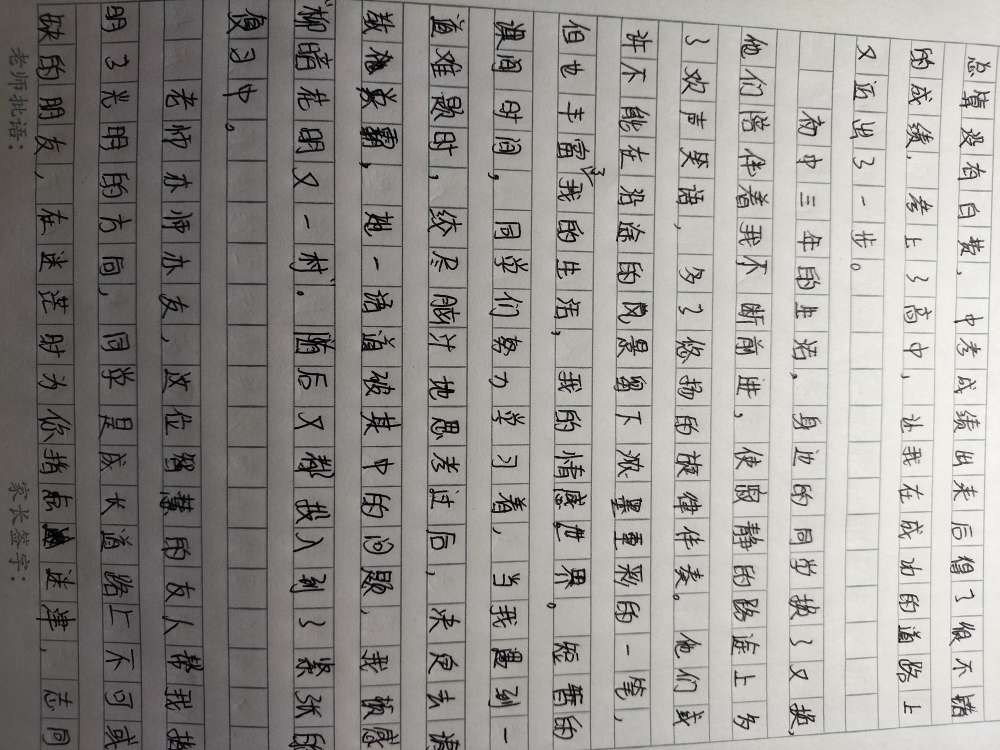 总算没有白费，中考成绩出来后得了很不错
的成绩，考上了高中，让我在成功的道路上
又迈出了一步。
初中三年的生活，身边的同学换了又换，
他们陪伴着我不断前进，使寂静的路途上多
了欢声笑语，多了悠扬的旋律伴奏。他们或
许不能在沿途的风景留下浓墨重彩的一笔，
但也丰富了我的生活，我的情感世界。短暂的
课间时间，同学们努力学习着，当我遇到一
道难题时，绞尽脑汁地思考过后，决定去请
教学霸，她一语道破其中的问题，我顿感
“柳暗花明又一村”。随后又都投入到了紧张的
复习中。
老师亦师亦友，这位智慧的友人帮我指
明了光明的方向，同学是成长道路上不可或
缺的朋友，在迷茫时为你指点迷津，志同
老师批语：
家长签字：